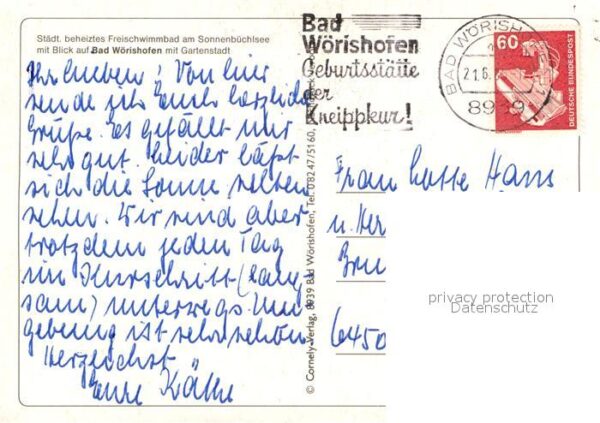 Städt. beheiztes Freischwimmbad am Sonnenbüchlsee
mit Blick auf Bad Wörishofen mit Gartenstadt
Ihr Lieben! Von hier
sende ich Euch herzliche
Grüße. Es gefällt mir
sehr gut. Leider läßt
sich die Sonne selten
sehen. Wir sind aber
trotzdem jeden Tag
im Kurschritt (lang-
sam) unterwegs. Um-
gebung ist sehr schön.
Herzlichst
Eure Käthe
© Cornely-Verlag, 8939 Bad Wörishofen, Tel. 08247/5160,
Bad
Wörishofen
Geburtsstätte
der
Kneippkur!
BAD WÖRISH
21.6.
8939
60
DEUTSCHE BUNDESPOST
Frau Lotte Hans
u. Her
Bru
6450
privacy protection
Datenschutz